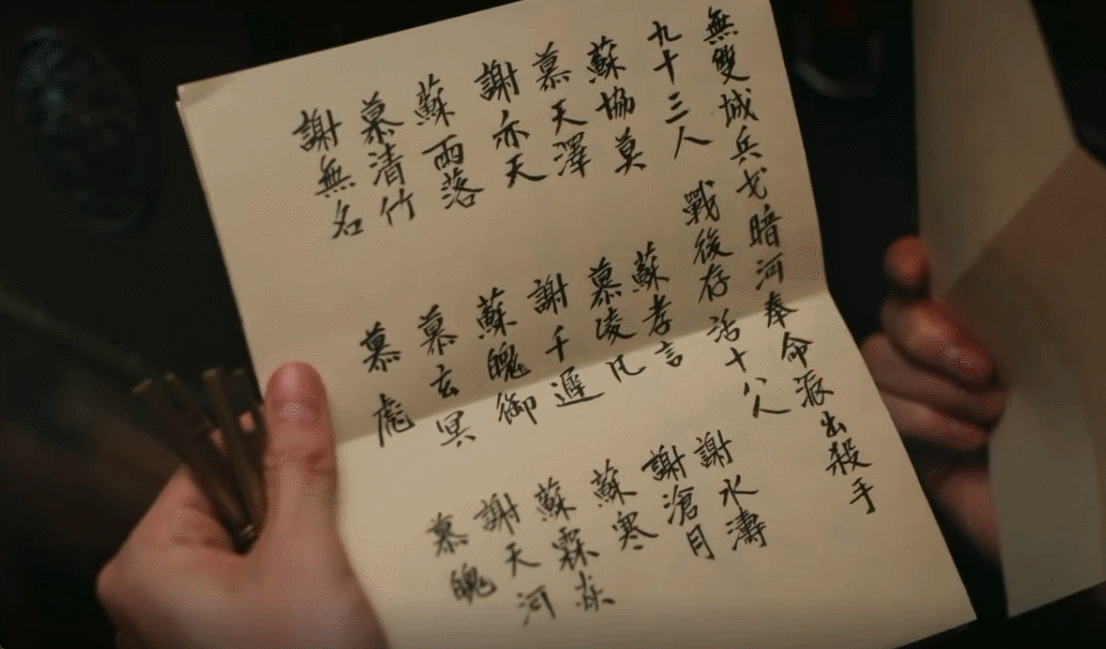 無雙城兵戈暗河奉命派出殺手
九十三人 戰後存活十八人
蘇協莫 蘇孝言 謝水濤
慕天澤 慕凌凡 謝滄月
謝亦天 謝千遲 蘇寒
蘇雨落 蘇魄御 蘇霖
慕清竹 慕玄冥 謝天河
謝無名 慕 慕魄